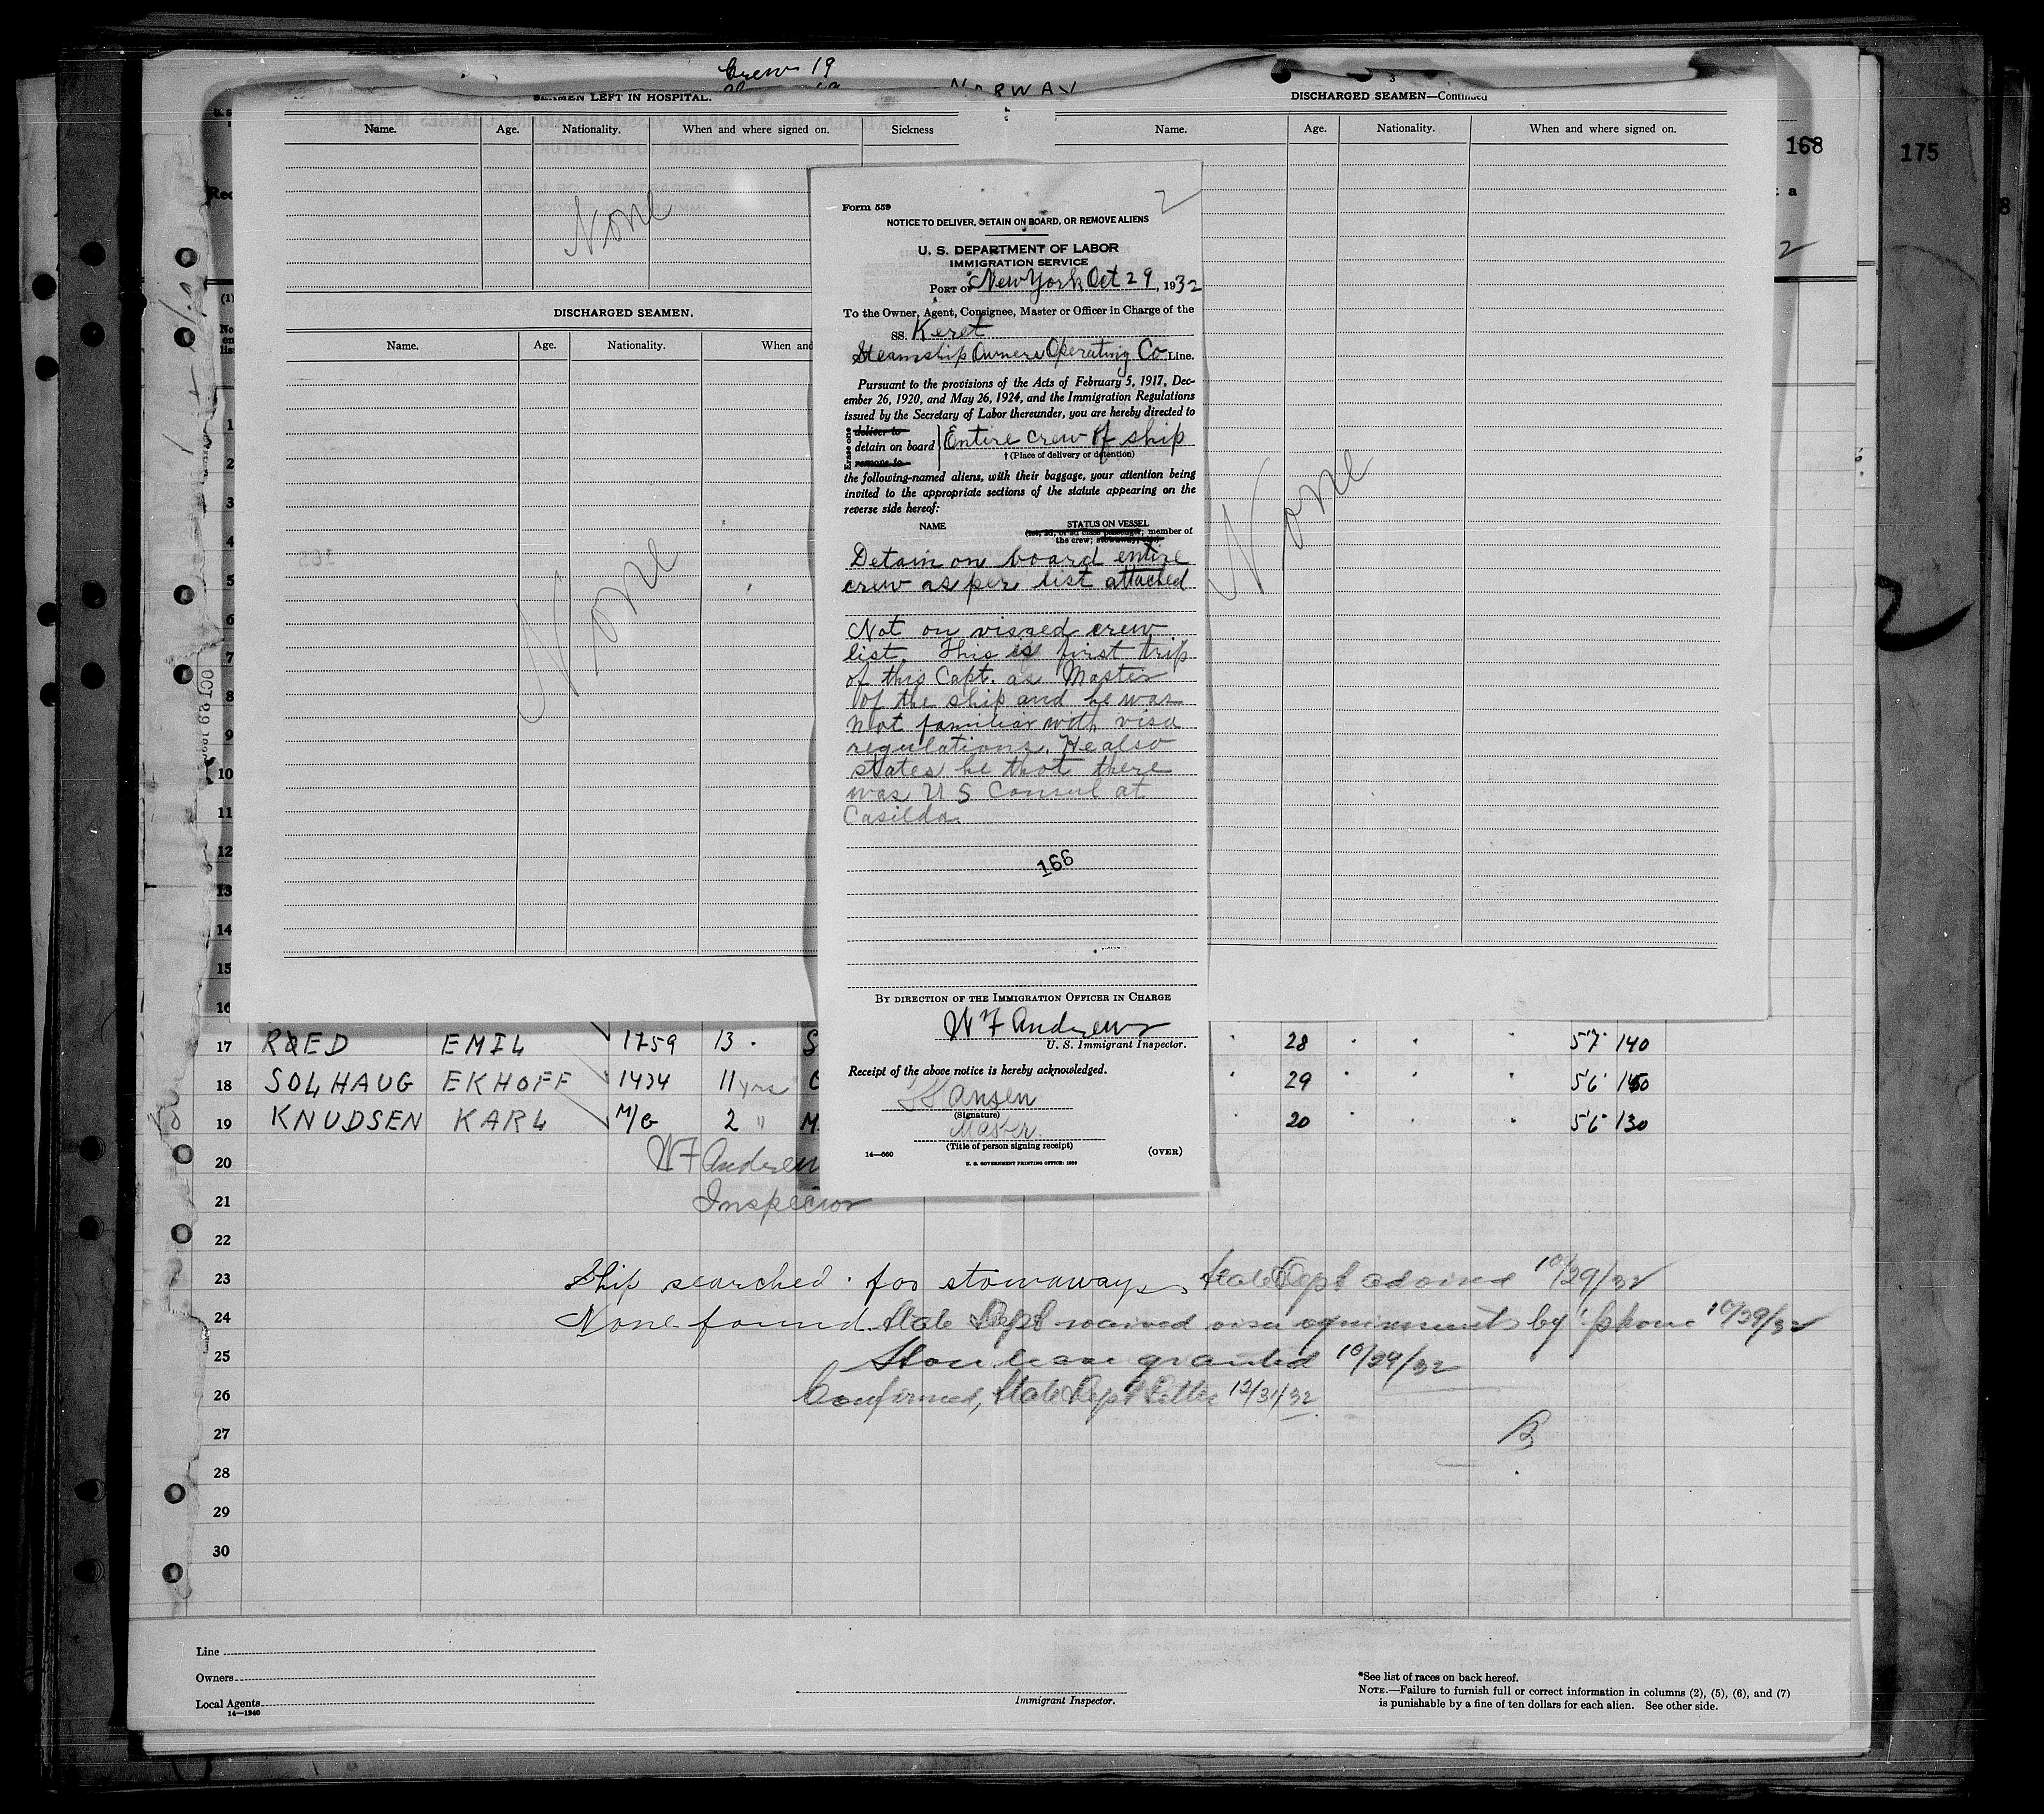 Crew 19
NORWAY
3
SEAMEN LEFT IN HOSPITAL.
Name. Age. Nationality. When and where signed on. Sickness
None
DISCHARGED SEAMEN.
Name. Age. Nationality. When and
None
DISCHARGED SEAMEN—Continued
Name. Age. Nationality. When and where signed on.
None
168
175
a
2
8
Rec
(1)
No
on
list
OCT 29
Form 559
2
NOTICE TO DELIVER, DETAIN ON BOARD, OR REMOVE ALIENS
U. S. DEPARTMENT OF LABOR
IMMIGRATION SERVICE
PORT OF New York Oct 29, 1932
To the Owner, Agent, Consignee, Master or Officer in Charge of the
SS. Keret
Steamship Owners Operating Co Line.
Pursuant to the provisions of the Acts of February 5, 1917, Dec-
ember 26, 1920, and May 26, 1924, and the Immigration Regulations
issued by the Secretary of Labor thereunder, you are hereby directed to
Erase one
deliver to
detain on board Entire crew of ship
remove to
† (Place of delivery or detention)
the following-named aliens, with their baggage, your attention being
invited to the appropriate sections of the statute appearing on the
reverse side hereof:
NAME STATUS ON VESSEL
(1st, 2d, or 3d class passenger; member of
the crew; stowaway; etc.)
Detain on board entire
crew as per list attached
Not on vissed crew
list. This is first trip
of this Capt. as Master
of the ship and he was
not familiar with visa
regulations. He also
states he that there
was U S Consul at
Casilda.
166
BY DIRECTION OF THE IMMIGRATION OFFICER IN CHARGE
W F Andrews
U. S. Immigrant Inspector.
Receipt of the above notice is hereby acknowledged.
Hansen
(Signature)
Master.
(Title of person signing receipt)
14—660 (OVER)
U. S. GOVERNMENT PRINTING OFFICE: 1929
1
2
3
4
5
6
7
8
9
10
11
12
13
14
15
16
17 RØED EMIL 1759 13 S 28 5'7" 140
18 SOLHAUG EKHOFF 1434 11 yrs 29 5'6" 150
19 KNUDSEN KARL M/G 2 " M 20 5'6" 130
20 W F Andrews
21 Inspector
22
23 Ship searched for stowaways State Dept advised 10/29/32
24 None found. State Dept waived visa requirements by 'phone 10/29/32
25 Shore leave granted 10/29/32
26 Confirmed, State Dept Letter 12/31/32
27
28
29
30
Line
Owners
Local Agents
14—1240
Immigrant Inspector.
*See list of races on back hereof.
NOTE.—Failure to furnish full or correct information in columns (2), (5), (6), and (7)
is punishable by a fine of ten dollars for each alien. See other side.